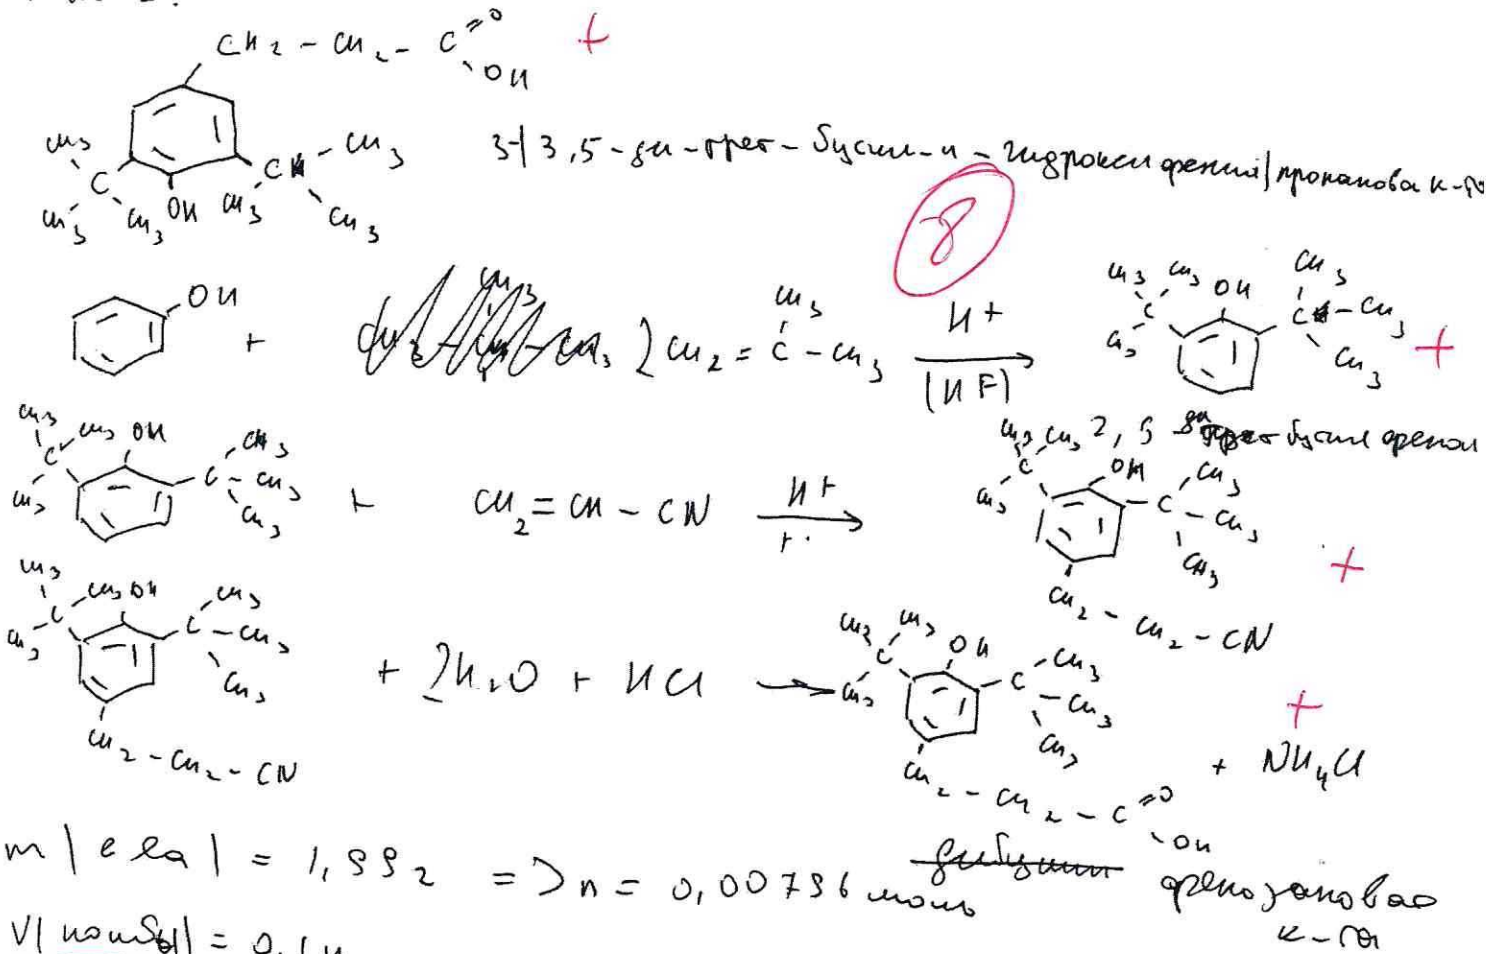 CH₂ - CH₂ - C =O +
OH
CH₃ C CH₃ CH₃ OH CH₃ C - CH₃ CH₃
3-|3,5-ди-трет-бутил-п-гидроксифенил|пропанова к-та
8
OH + 2CH₂ = C - CH₃ H+ (HF) CH₃ CH₃ OH CH₃ C - CH₃ CH₃ +
CH₃
ди трет бутил фенол
CH₃ CH₃ OH CH₃ C - CH₃ CH₃ + CH₂ = CH - CN H+ t° CH₃ CH₃ OH C - CH₃ CH₃ CH₃ +
CH₂ - CH₂ - CN
CH₃ CH₃ OH CH₃ C - CH₃ CH₃ + 2H₂O + HCl → CH₃ CH₃ OH C - CH₃ CH₃ CH₃ + NH₄Cl +
CH₂ - CH₂ - CN
CH₂ - CH₂ - C =O
OH
= > n = 0,00796 моль
фенозановая
к-та